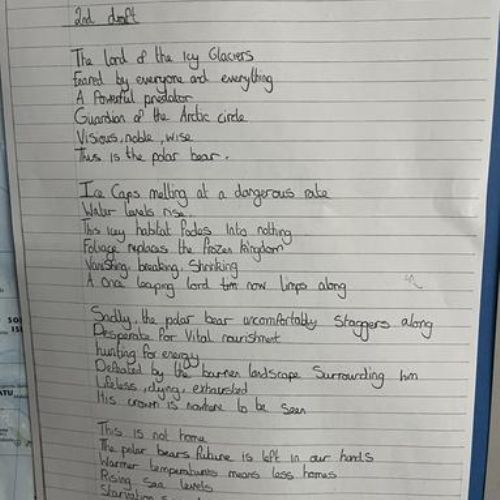 2nd draft
The lord of the Icy Glaciers
Feared by everyone and everything
A Powerful predator
Guardian of the Arctic circle
Visious, noble, wise
This is the polar bear.
Ice Caps melting at a dangerous rate
Water levels rise
This Icy habitat fades Into nothing
Foliage replaces the frozen kingdom
Vanishing, breaking, Shrinking
A once leaping lord now limps along
Sadly, the polar bear uncomfortably Staggers along
Desperate for Vital nourishment
hunting for energy
Defeated by the barren landscape Surrounding him
Lifeless, dying, exhausted
His crown is nowhere to be Seen
This is not home
The polar bears future is left in our hands
Warmer temperatures means less homes
Rising sea levels
Starvation